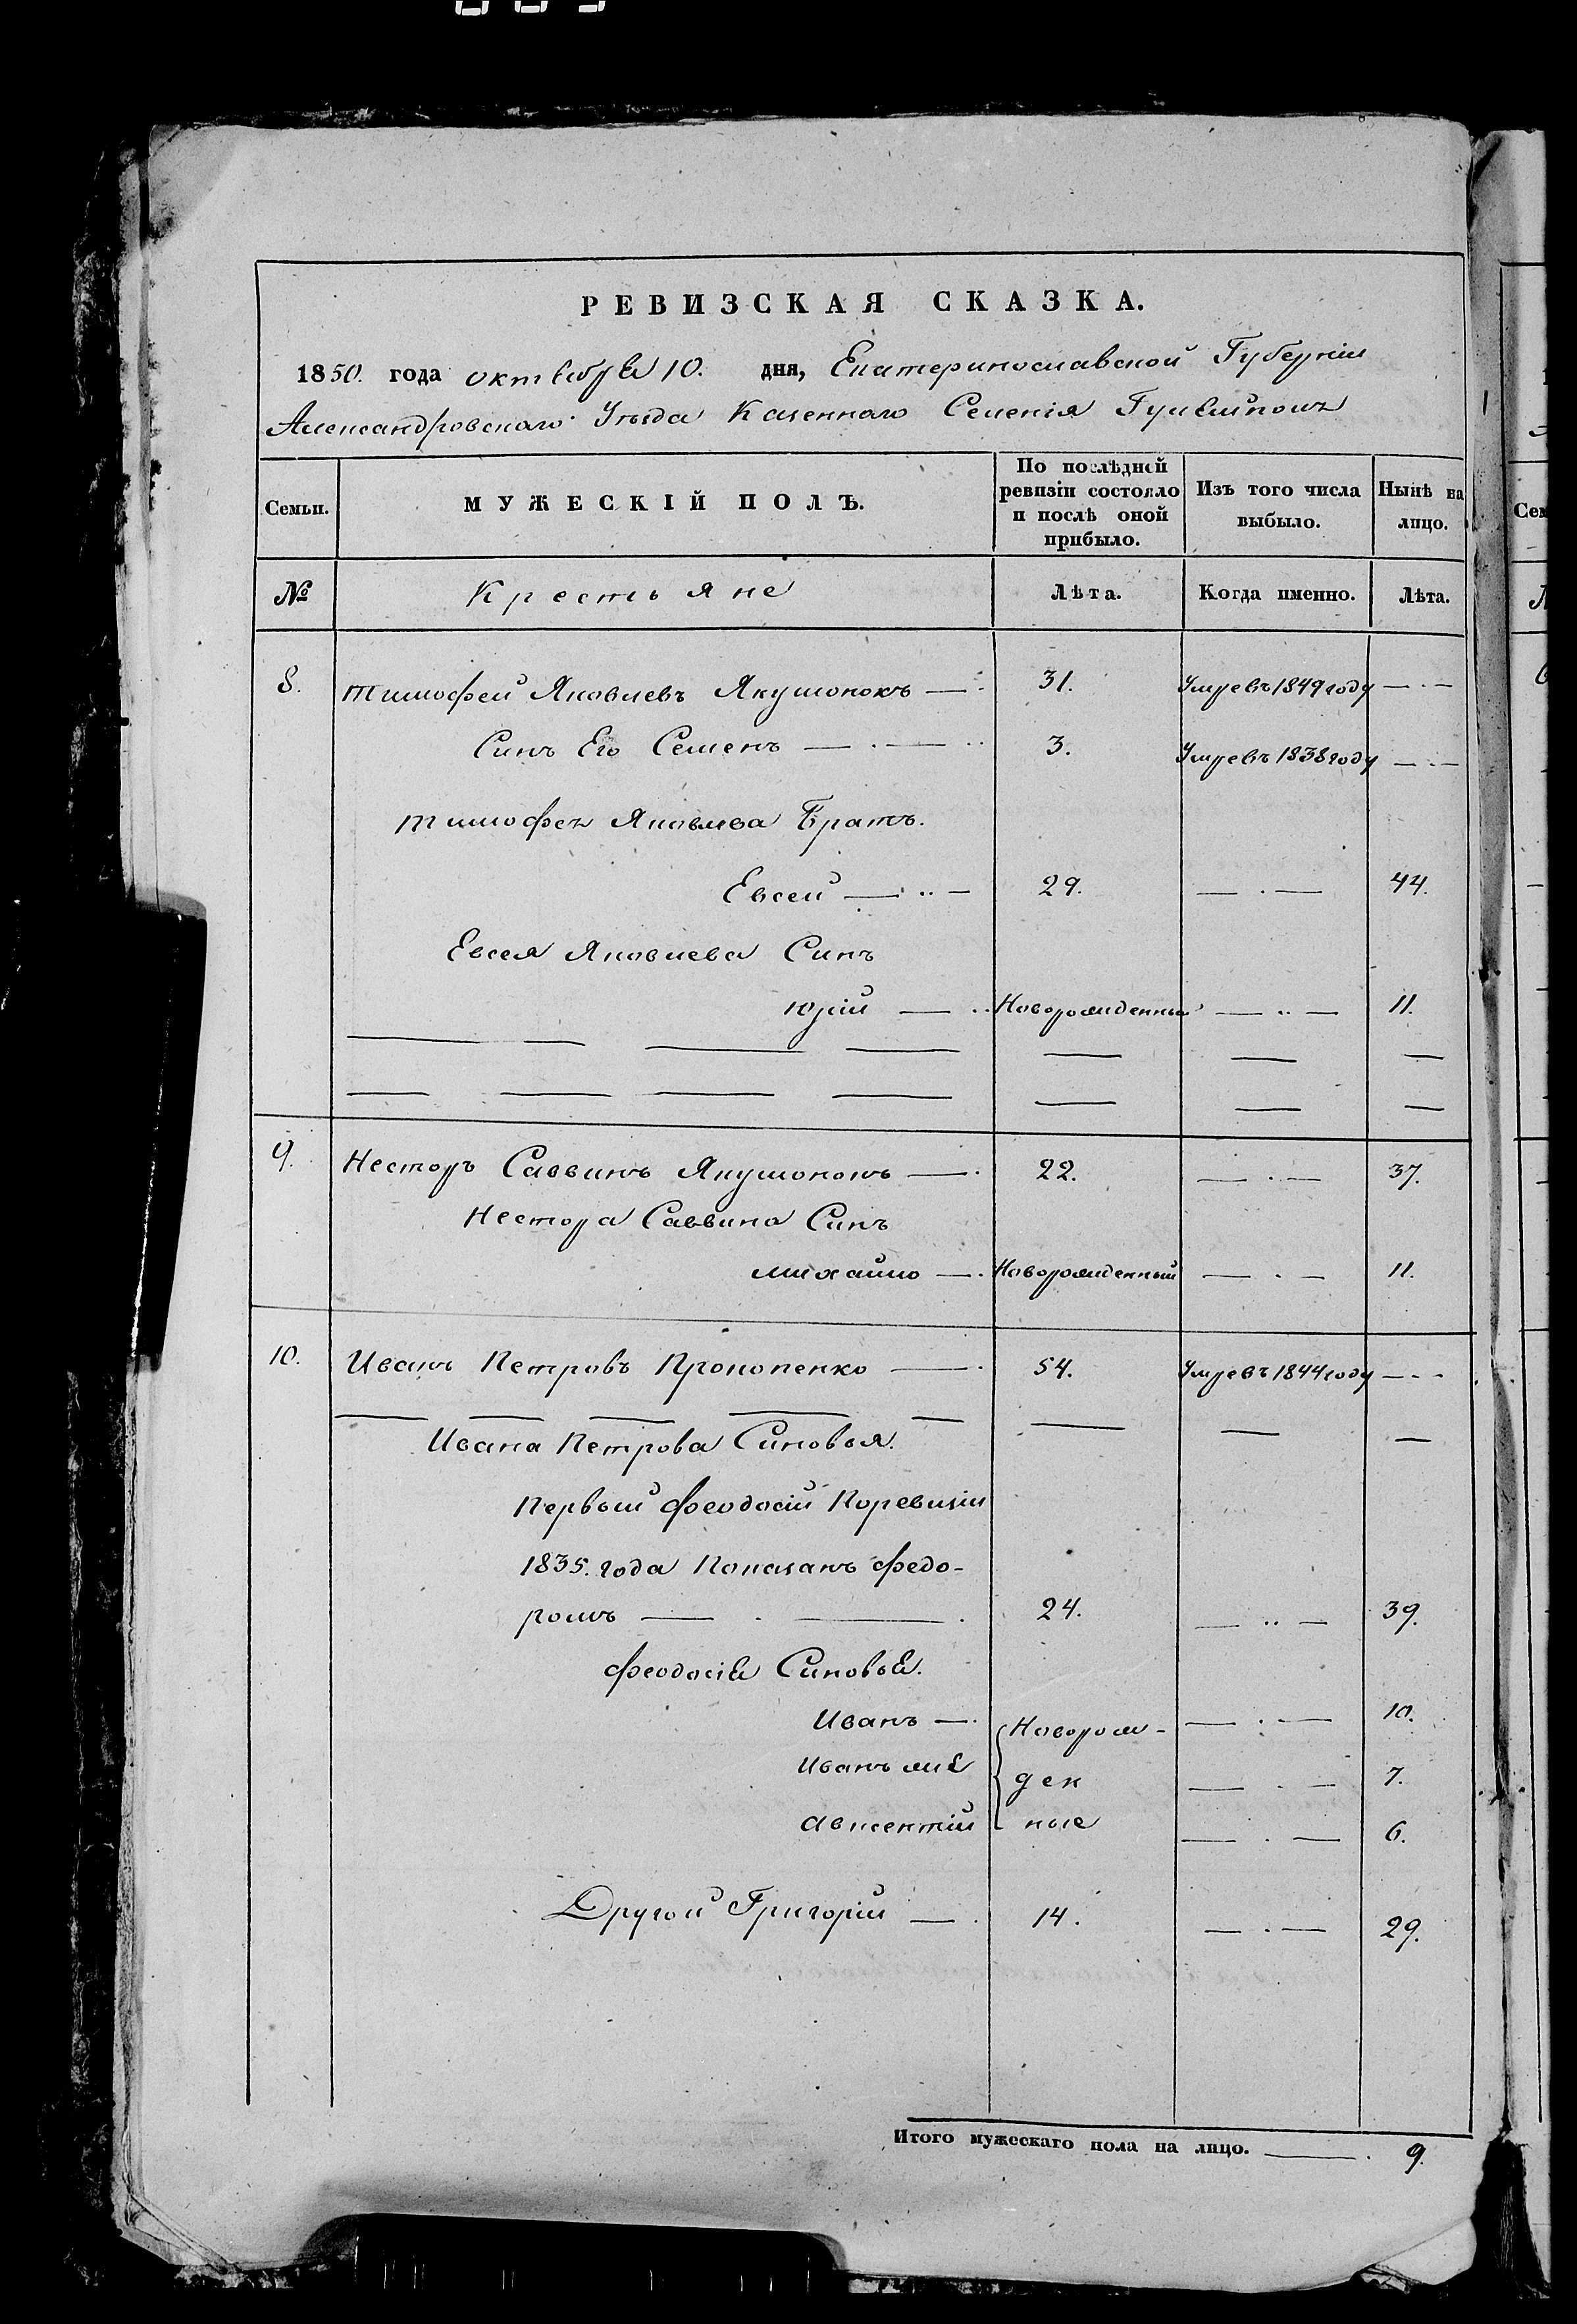 РЕВИЗСКАЯ СКАЗКА.
1850. года октября 10. дня, Екатеринославской Губерніи
Александровскаго Уѣзда Казеннаго Селенія
Семьи. МУЖЕСКІЙ ПОЛЪ. По послѣдней ревизіи состояло и послѣ оной прибыло. Изъ того числа выбыло. Нынѣ на лицо.
№ Крестьяне Лѣта. Когда именно. Лѣта.
8. Тимофей Яковлевъ Якушонокъ 31. Умревъ 1849 году
Синъ Его Семенъ 3. Умревъ 1838 году
Тимофея Яковлева Братъ.
Евсей 29. 44.
Евсея Яковлева Синъ
Юрій Новорожденный 11.
9. Несторъ Саввинъ Якушонокъ 22. 37.
Нестора Саввина Синъ
Михайло Новорожденный 11.
10. Иванъ Петровъ Прокопенко 54. Умревъ 1844 году
Ивана Петрова Синовья.
Первый Феодосій Поревизіи
1835. года Показанъ Федо-
ромъ 24. 39.
Феодосія Синовья.
Иванъ Новорож- 10.
Иванъ ден 7.
Авксентій ные 6.
Другой Григорій 14. 29.
Итого мужескаго пола на лицо. 9.